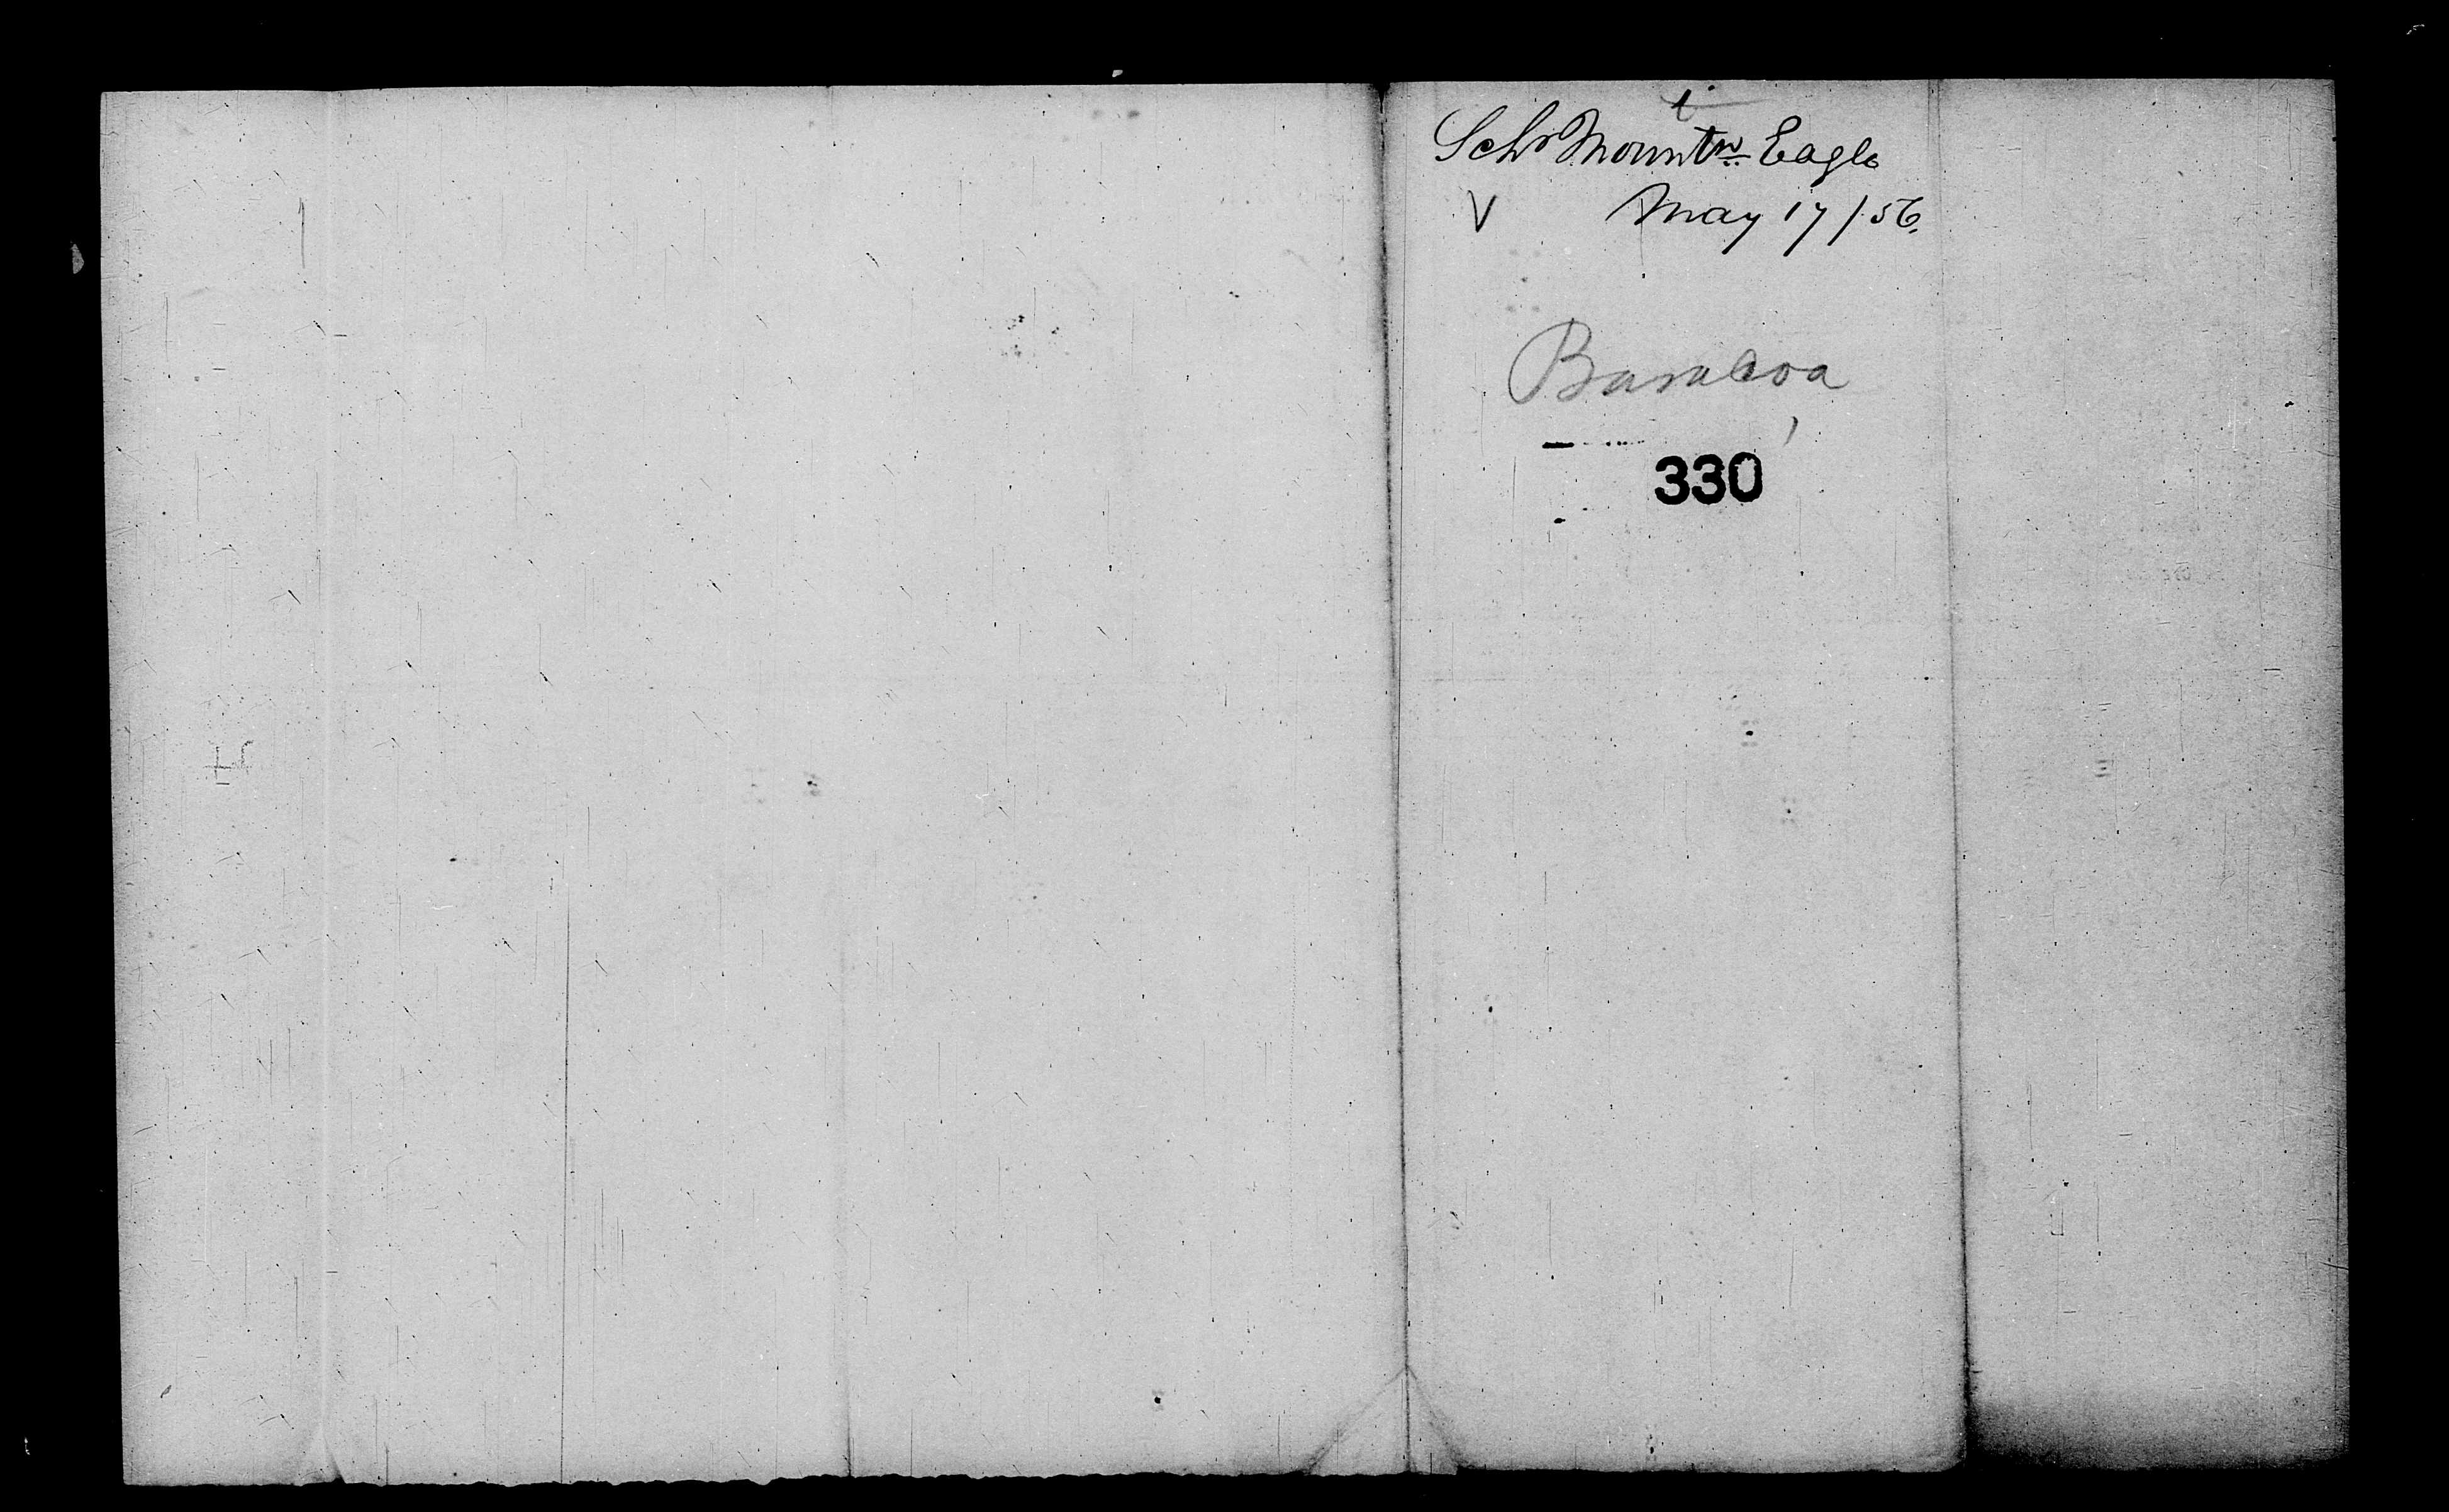 Schr Mountn Eagle
V May 17/56.
Baracoa
330